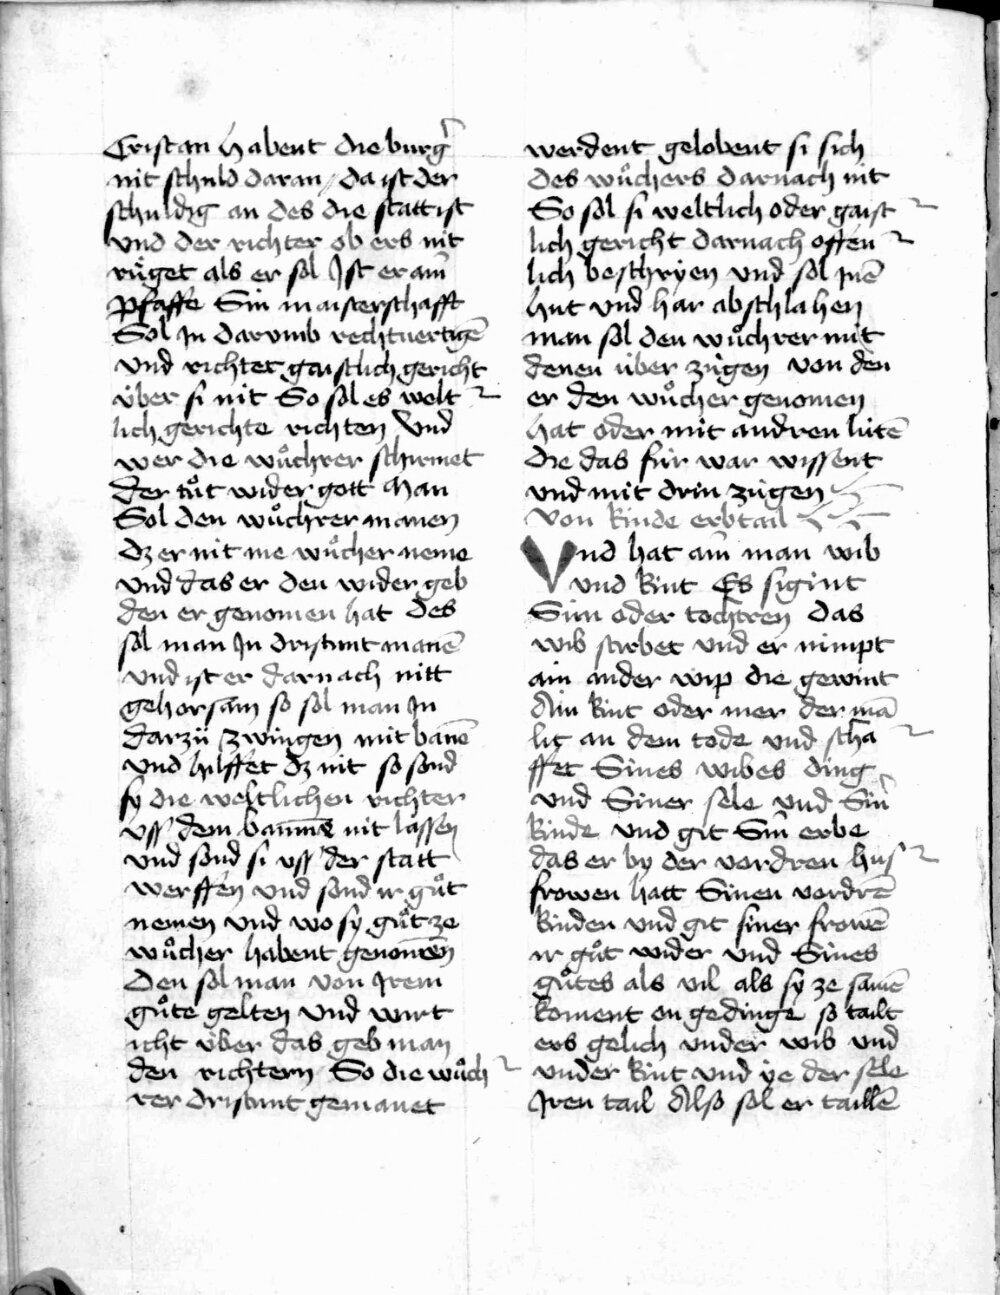 Cristan habent die burgʼ
nit schuld daran / da ist der
schuldig an des die statt ist
vnd der richter ob ers nit
rüget als er sol Ist er ain
pfaffe Sin maisterschafft
Sol In darumb rechtuertigē
vnd richtet gaistlich gericht
über si nit So sol es welt
lich gerichte richten Vnd
wer die wůchrer schirmet
der tůt wider gott Man
Sol den wůchrer manen
dz er nit me wůcher neme
vnd das er den wider geb
den er genomen hat des
sol man In dristunt manē
vnd ist er darnach nitt
gehorsam so sol man In
darzů zwingen mit bannē
vnd hilffet dz nit so sond
sy die weltlichen richter
vss dem banne nit lassen
vnd sond si vss der statt
werffen vnd sond ir gůt
nemen vnd wo sy gůt ze
wůcher habent genomen
Den sol man von Irem
gůte gelten vnd wirt
icht über das geb man
den richtern So die wůch
rer dristunt gemanet
werdent gelobent si sich
des wůchers darnach nit
So sol si weltlich oder gaist
lich gericht darnach offen
lich beschryen vnd sol Inē
hut vnd har abschlahen
man sol den wůchrer mit
denen über zügen von den
er den wůcher genomen
hat oder mit andren lütē
die das für war wissent
vnd mit drin zügen
Von kinde erbtail
Vnd hat ain man wib
vnd kint Es sigint
Sün oder tochtren das
wib stirbet vnd er nimpt
ain ander wip die gewint
Ain kint oder mer der mā
lit an dem tode vnd scha
ffet Sines wibes ding
vnd Siner sele vnd Sinʼ
kinde vnd git Sin erbe
das er by der vordren hus
frowen hatt Sinen vordrē
kinden vnd git siner frowē
ir gůt wider vnd Sines
gůtes als vil als sy ze samē
koment on gedinge so tailt
ers gelich vnder wib vnd
vnder kint vnd ye der sele
Iren tail Also sol er taillē